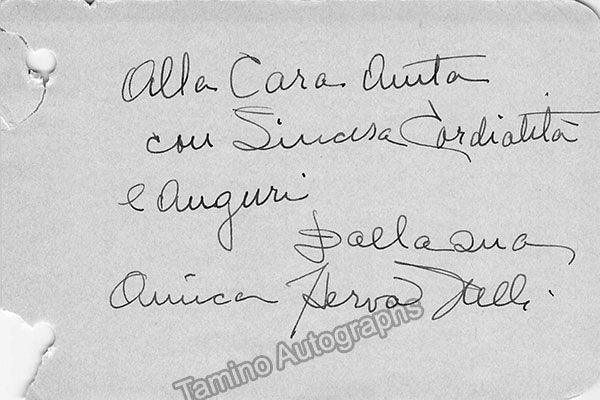 Alla Cara Anita
con Sincera Cordialità
e auguri
Dalla sua
Amica Herva Nelli.
Tamino Autographs